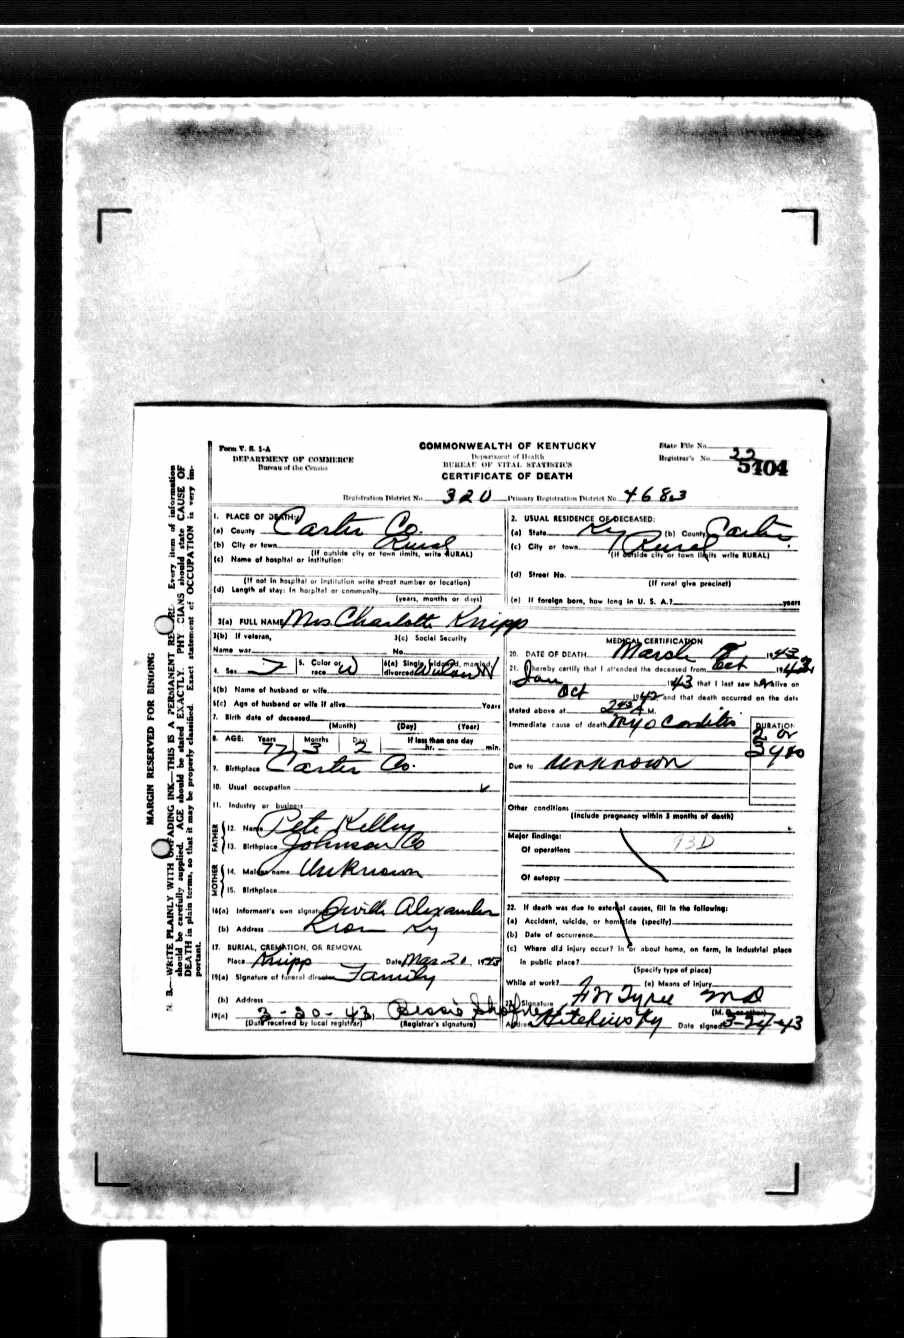 Form V. S. 1-A
DEPARTMENT OF COMMERCE
Bureau of the Census
COMMONWEALTH OF KENTUCKY
Department of Health
BUREAU OF VITAL STATISTICS
CERTIFICATE OF DEATH
State File No.
Registrar's No. 22
5404
Registration District No. 320 Primary Registration District No. 4683
1. PLACE OF DEATH:
(a) County Carter Co.
(b) City or town Rural
(If outside city or town limits, write RURAL)
(c) Name of hospital or institution:
(If not in hospital or institution write street number or location)
(d) Length of stay: In hospital or community
(years, months or days)
2. USUAL RESIDENCE OF DECEASED:
(a) State Ky (b) County Carter
(c) City or town Rural
(If outside city or town limits write RURAL)
(d) Street No.
(If rural give precinct)
(e) If foreign born, how long in U. S. A.? years
3(a) FULL NAME Mrs Charlotte Knipp
3(b) If veteran,
Name war
3(c) Social Security
No.
4. Sex F 5. Color or race W 6(a) Single, widowed, married, divorced
6(b) Name of husband or wife
6(c) Age of husband or wife if alive Years
7. Birth date of deceased
(Month) (Day) (Year)
8. AGE: Years Months Days If less than one day
77 3 2 hr. min.
9. Birthplace Carter Co.
10. Usual occupation
11. Industry or business
FATHER
12. Name Pete Kelley
13. Birthplace Johnson Co
MOTHER
14. Maiden name Unknown
15. Birthplace
16(a) Informant's own signature Orville Alexander
(b) Address Ky
17. BURIAL, CREMATION, OR REMOVAL
Place Knipp Date Mar 20 1943
19(a) Signature of funeral director Family
(b) Address
19(a) 3-20-43, Bessie
(Date received by local registrar) (Registrar's signature)
MEDICAL CERTIFICATION
20. DATE OF DEATH March 1943
21. I hereby certify that I attended the deceased from Oct 1942
Jan 1943 that I last saw her alive on
Oct 1942 and that death occurred on the date
stated above at A M.
Immediate cause of death Myocarditis
DURATION
2 or
3 yrs
Due to unknown
Other conditions
(Include pregnancy within 3 months of death)
Major findings:
Of operations 93D
Of autopsy
22. If death was due to external causes, fill in the following:
(a) Accident, suicide, or homicide (specify)
(b) Date of occurrence
(c) Where did injury occur? In or about home, on farm, in industrial place
in public place?
(Specify type of place)
While at work? (e) Means of injury
23. Signature M D
(M. D. or other)
Address Hitchins Ky Date signed 3-24-43
MARGIN RESERVED FOR BINDING
N. B.—WRITE PLAINLY WITH UNFADING INK—THIS IS A PERMANENT RECORD. Every item of information
should be carefully supplied. AGE should be stated EXACTLY. PHYSICIANS should state CAUSE OF
DEATH in plain terms, so that it may be properly classified. Exact statement of OCCUPATION is very im-
portant.